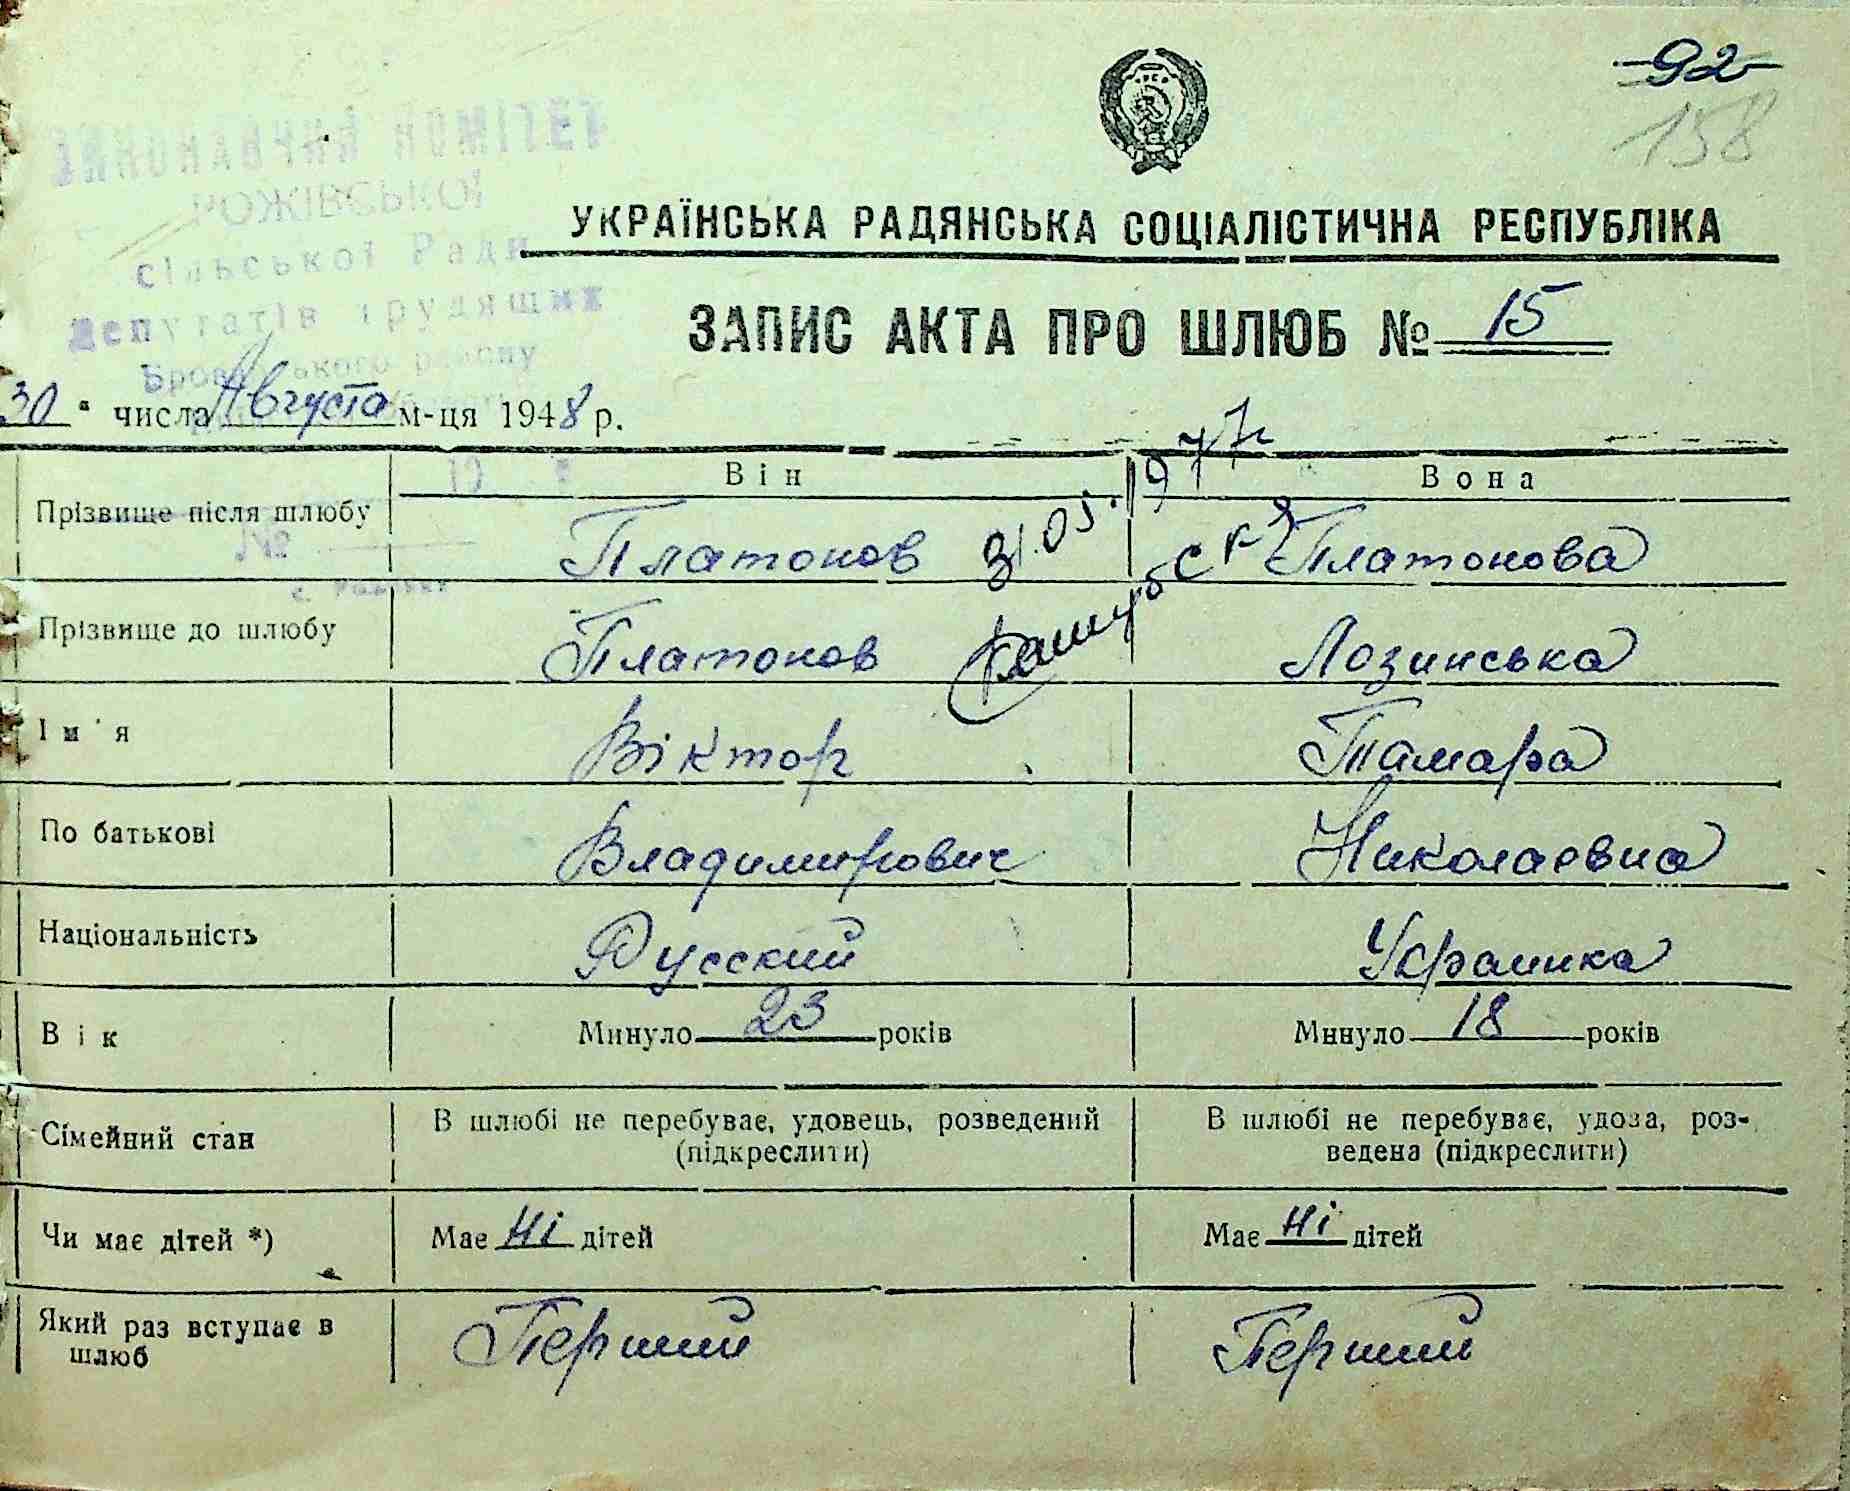 92
158
ВИКОНАВЧИЙ КОМІТЕТ
РОЖІВСЬКОЇ
сільської Ради
Депутатів трудящих
Броварського району
УКРАЇНСЬКА РАДЯНСЬКА СОЦІАЛІСТИЧНА РЕСПУБЛІКА
ЗАПИС АКТА ПРО ШЛЮБ № 15
30 " числа Августа м-ця 1948 р.
Він Вона
31.05.1977
Прізвище після шлюбу Платонов Платонова
№
Прізвище до шлюбу Платонов Лозинська
Ім'я Віктор Тамара
По батькові Владимирович Николаевна
Національність Русский Украинка
Вік Минуло 23 років Минуло 18 років
Сімейний стан В шлюбі не перебуває, удовець, розведений (підкреслити) В шлюбі не перебуває, удова, роз-
ведена (підкреслити)
Чи має дітей *) Має Ні дітей Має Ні дітей
Який раз вступає в шлюб Перший Перший